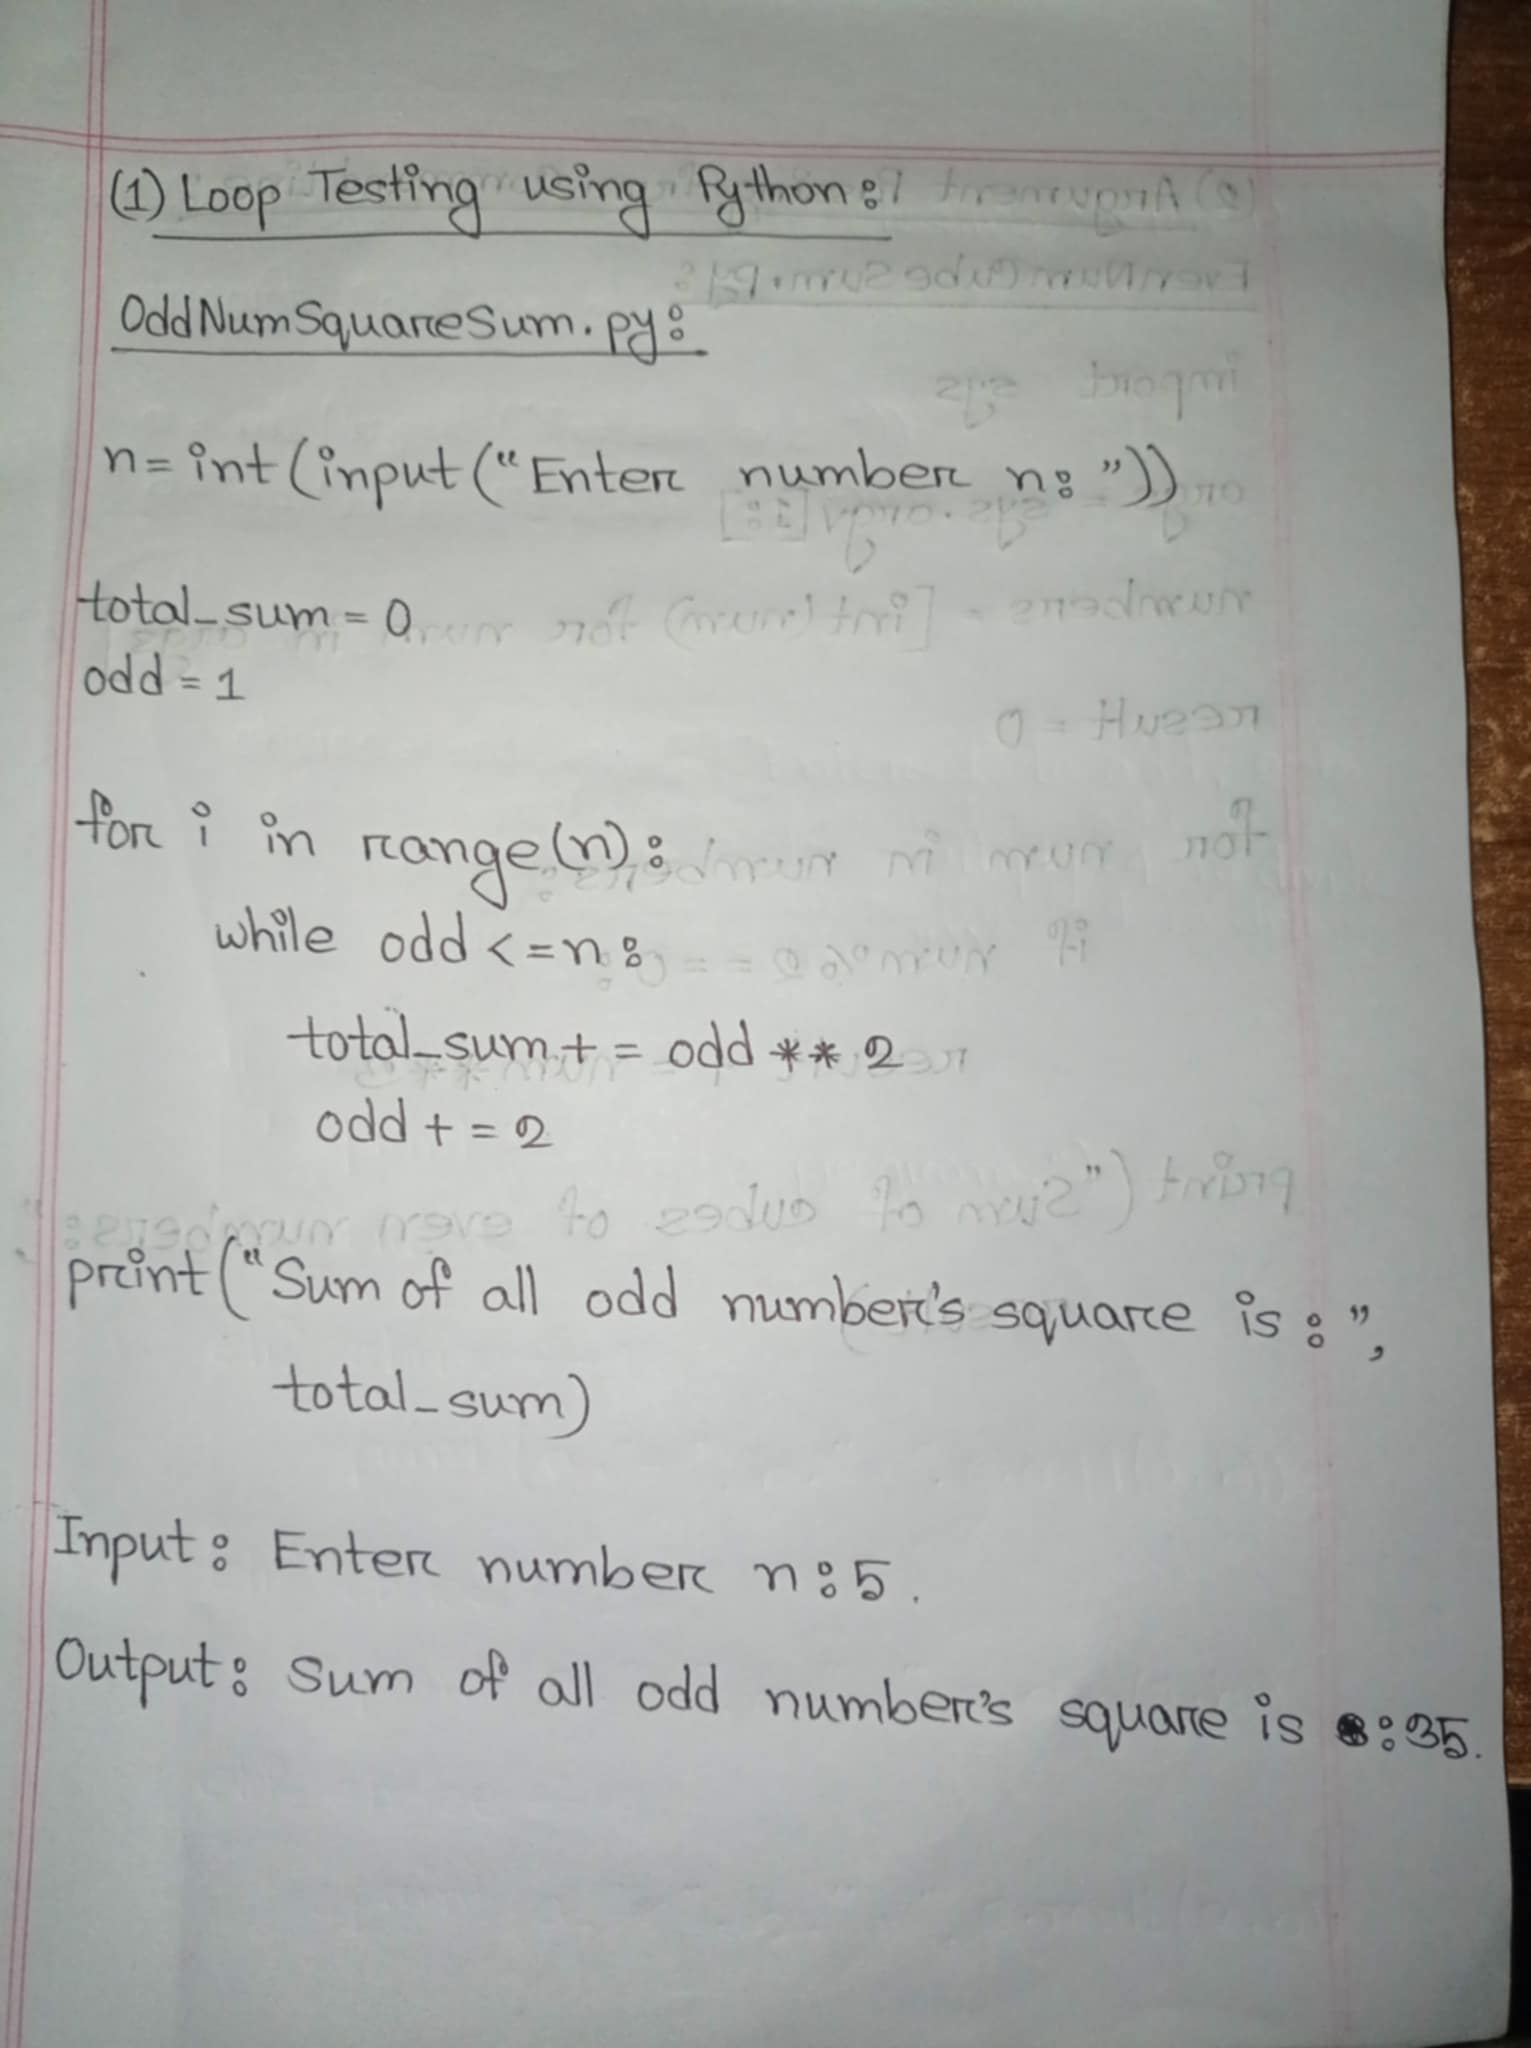 (1) Loop Testing using Python:
OddNumSquareSum.py:
n = int(input("Enter number n: "))
total_sum = 0
odd = 1
for i in range(n):
while odd <= n:
total_sum += odd ** 2
odd += 2
print("Sum of all odd number's square is : ",
total_sum)
Input: Enter number n: 5.
Output: Sum of all odd number's square is : 35.